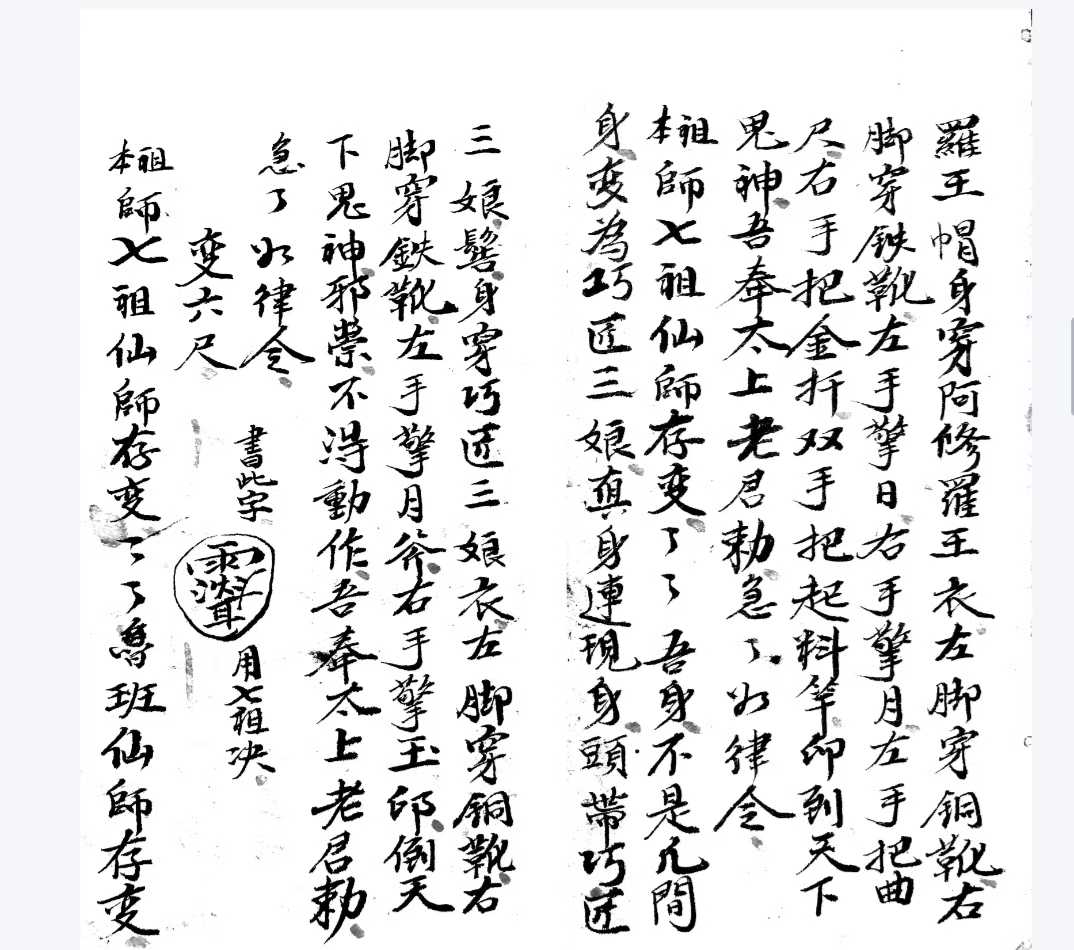 羅王帽身穿阿修羅王衣左脚穿铜靴右
脚穿鉄靴左手擎日右手擎月左手把曲
尺右手把金扦双手把起料竿印到天下
鬼神吾奉太上老君勅急了了如律令
本祖師七祖仙師存变了了吾身不是凢間
身变為巧匠三娘真身連現身頭帶巧匠
三娘髻身穿巧匠三娘衣左脚穿铜靴右
脚穿鉄靴左手擎月斧右手擎玉印倒天
下鬼神邪祟不淂動作吾奉太上老君勅
急了如律令
变六尺
書此字
用七祖决
本祖師七祖仙師存变了了魯班仙師存变